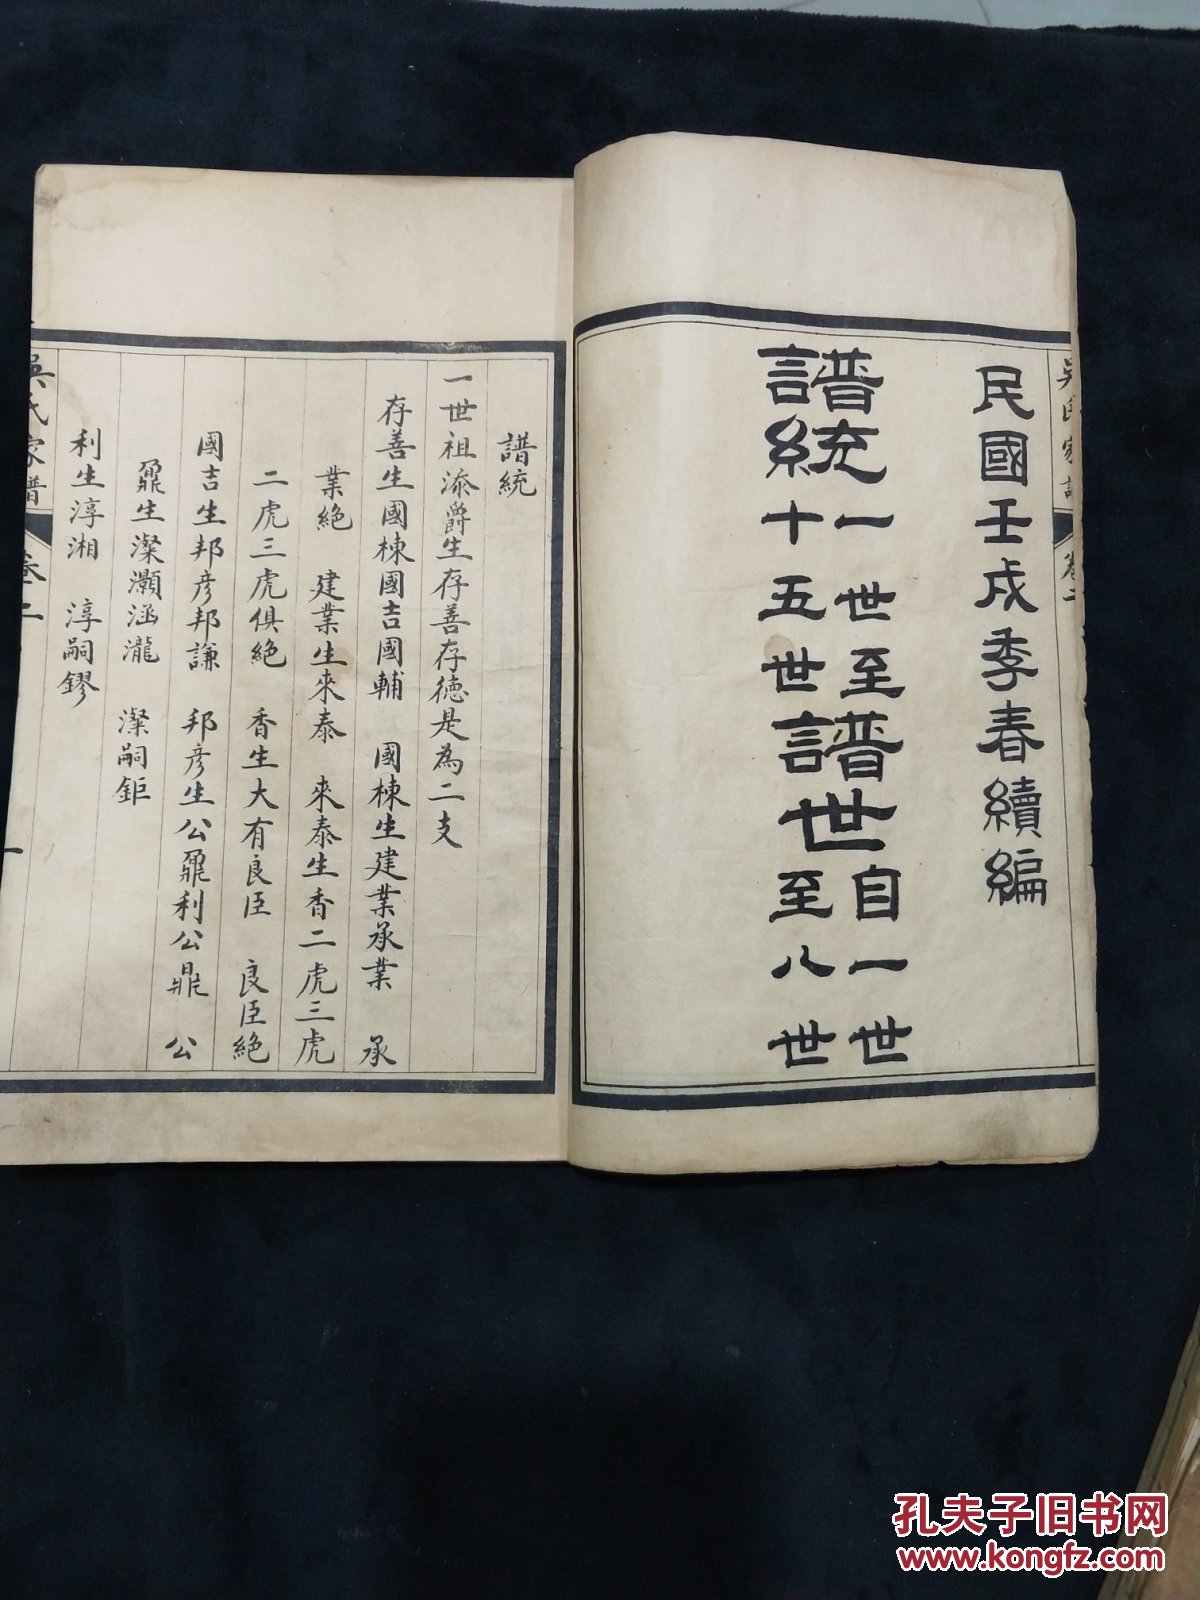 民國壬戌季春續編
譜統一世至譜世自一世
譜統十五世譜世至八世
吳氏家譜 卷二
譜統
一世祖添爵生存善存德是為二支
存善生國棟國吉國輔 國棟生建業承業 承
業絕 建業生來泰 來泰生香二虎三虎
二虎三虎俱絕 香生大有良臣 良臣絕
國吉生邦彥邦謙 邦彥生公鼐利公鼎 公
鼐生澯灝涵瀧 澯嗣鉅
利生淳湘 淳嗣鏐
吳氏家譜 卷二 一
孔夫子旧书网
www.kongfz.com